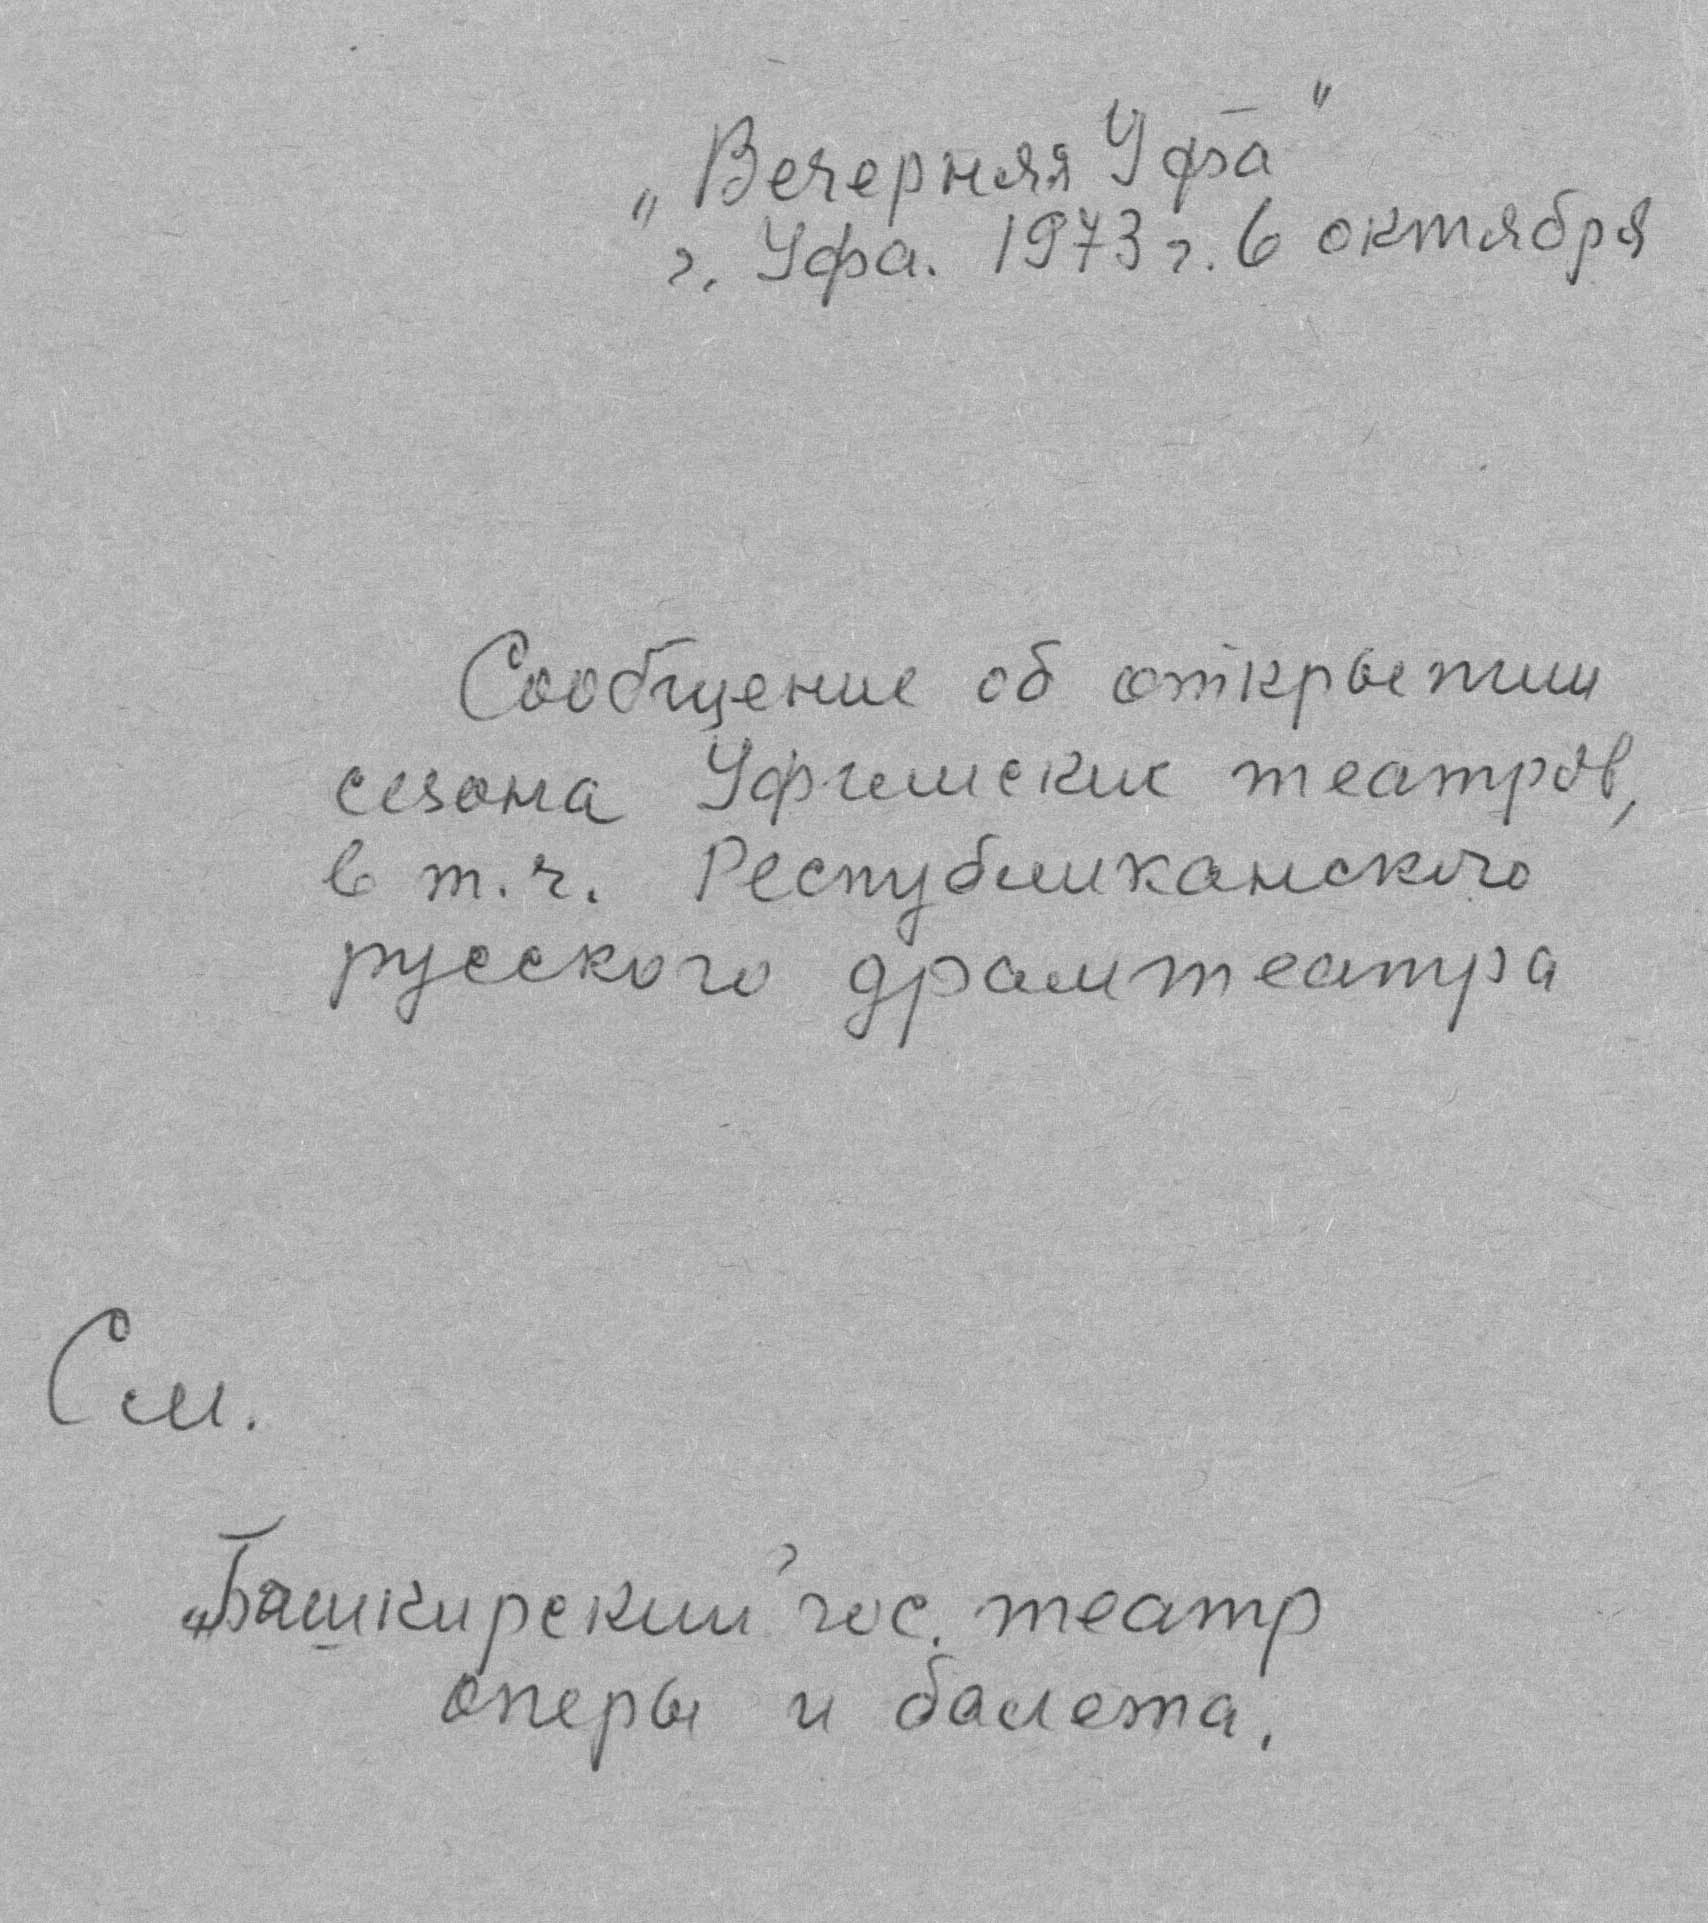 „Вечерняя Уфа"
г. Уфа. 1973 г. 6 октября
Сообщение об открытии
сезона Уфимских театров,
в т.ч. Республиканского
русского драмтеатра
См.
„Башкирский гос. театр
оперы и балета.